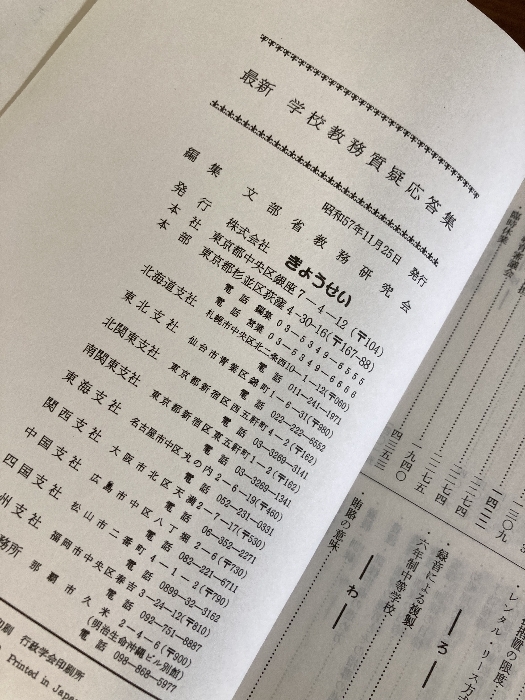 最新 学校教務質疑応答集
昭和57年11月25日 発行
編集 文部省教務研究会
発行 株式会社 きょうせい
本社 東京都中央区銀座7―4―12 (〒104)
本部 東京都杉並区荻窪4-30-16(〒167-88)
電話 編集 03―5349―6555
電話 営業 03―5349―6666
北海道支社 札幌市中央区北二条西10―1―12(〒060)
電話 011―241―1971
東北支社 仙台市青葉区錦町1―6―31(〒980)
電話 022―222―6552
北関東支社 東京都新宿区西五軒町4―2(〒162)
電話 03―3269―3141
南関東支社 東京都新宿区東五軒町1―2(〒162)
電話 03―3268―1341
東海支社 名古屋市中区丸の内2―6―19(〒460)
電話 052―231―0331
関西支社 大阪市北区天満2―7―17(〒530)
電話 06―352―2271
中国支社 広島市中区八丁堀2―6(〒730)
電話 082―221―6711
四国支社 松山市二番町4―1―2(〒790)
電話 0899―32―3162
州支社 福岡市中央区春吉3―24―12(〒810)
電話 092―751―8887
務所 那覇市久米2―4―6(〒900)
(明治生命沖縄ビル別館)
電話 098―868―5977
印刷 行政学会印刷所
Printed in Japan
賄賂の意味
― わ ―
録音による複製
六年制中等学校
― ろ ―
レンタル・リース